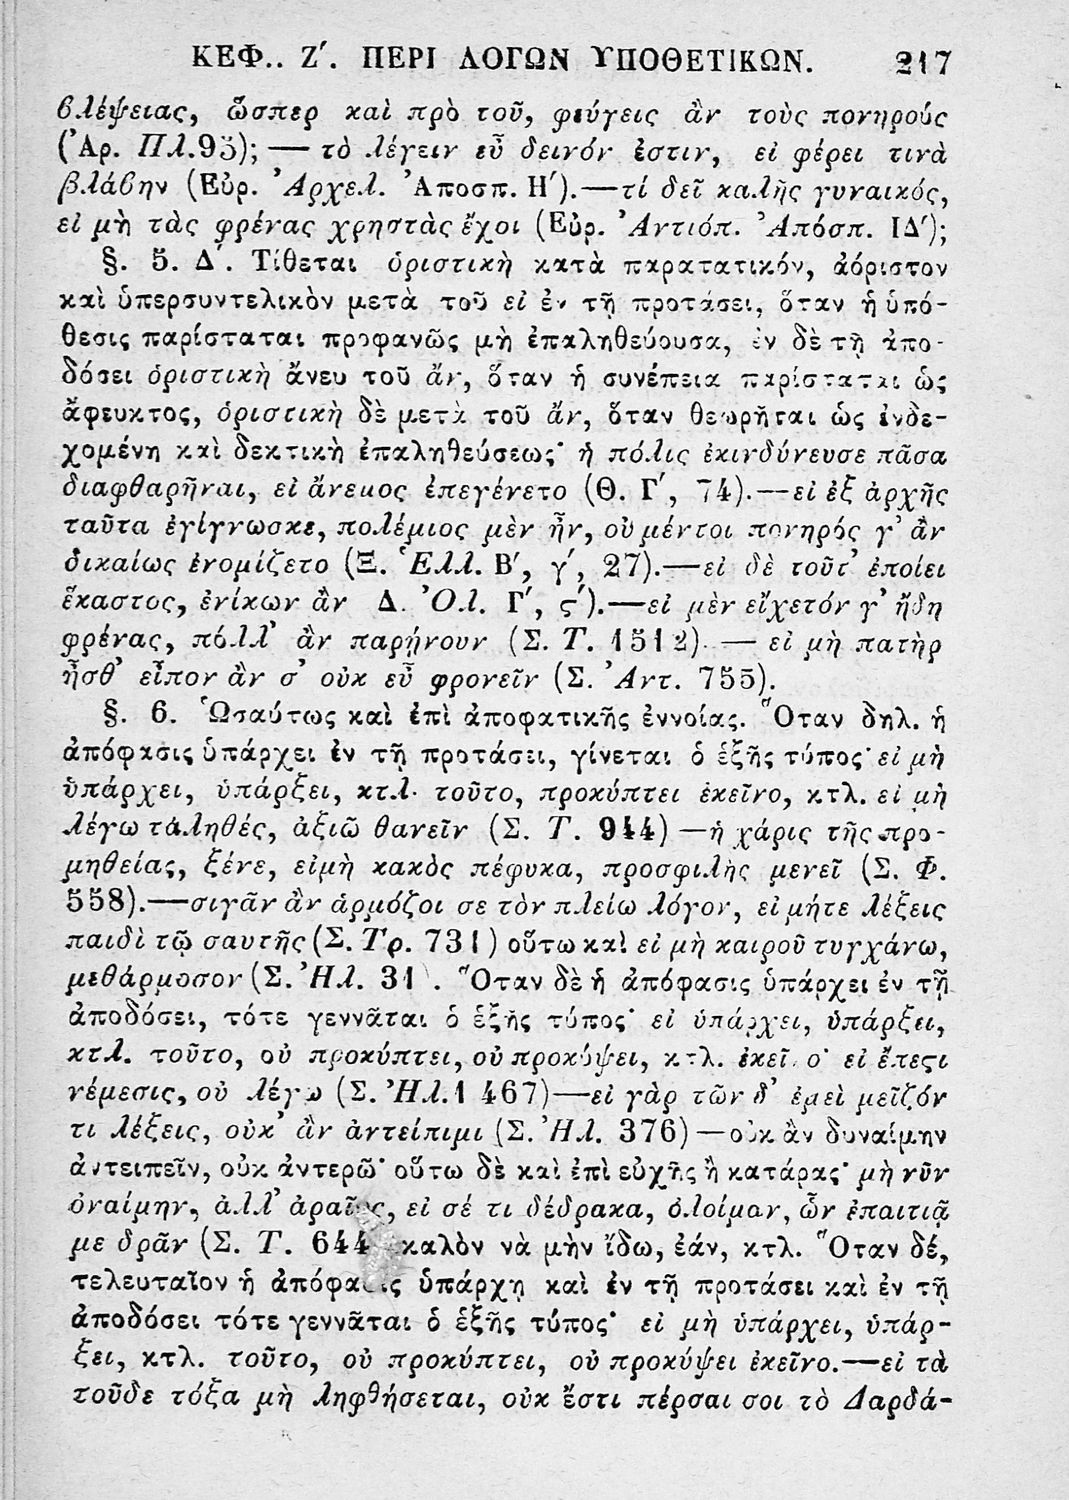 ΚΕΦ.. Ζ΄. ΠΕΡΙ ΛΟΓΩΝ ΥΠΟΘΕΤΙΚΩΝ. 217
βλέψειας, ὥσπερ καὶ πρὸ τοῦ, φεύγεις ἂν τοὺς πονηρούς
(Ἀρ. Πλ. 95); — τὸ λέγειν εὖ δεινόν ἐστιν, εἰ φέρει τινὰ
βλάβην (Εὐρ. Ἀρχελ. Ἀποσπ. Η΄).—τί δεῖ καλῆς γυναικός,
εἰ μὴ τὰς φρένας χρηστὰς ἔχοι (Εὐρ. Ἀντιόπ. Ἀπόσπ. ΙΔ΄);
§. 5. Δ΄. Τίθεται ὁριστικὴ κατὰ παρατατικόν, ἀόριστον
καὶ ὑπερσυντελικὸν μετὰ τοῦ εἰ ἐν τῇ προτάσει, ὅταν ἡ ὑπό-
θεσις παρίσταται προφανῶς μὴ ἐπαληθεύουσα, ἐν δὲ τῇ ἀπο-
δόσει ὁριστικὴ ἄνευ τοῦ ἄν, ὅταν ἡ συνέπεια παρίσταται ὡς
ἄφευκτος, ὁριστικὴ δὲ μετὰ τοῦ ἄν, ὅταν θεωρῆται ὡς ἐνδε-
χομένη καὶ δεκτικὴ ἐπαληθεύσεως· ἡ πόλις ἐκινδύνευσε πᾶσα
διαφθαρῆναι, εἰ ἄνεμος ἐπεγένετο (Θ. Γ΄, 74).—εἰ ἐξ ἀρχῆς
ταῦτα ἐγίγνωσκε, πολέμιος μὲν ἦν, οὐ μέντοι πονηρός γ’ ἂν
δικαίως ἐνομίζετο (Ξ. Ἑλλ. Β΄, γ΄, 27).—εἰ δὲ τοῦτ’ ἐποίει
ἕκαστος, ἐνίκων ἂν Δ. Ὀλ. Γ΄, ς΄).—εἰ μὲν εἴχετόν γ’ ἤδη
φρένας, πόλλ’ ἂν παρῄνουν (Σ. Τ. 1512).— εἰ μὴ πατὴρ
ἦσθ’ εἶπον ἂν σ’ οὐκ εὖ φρονεῖν (Σ. Ἀντ. 755).
§. 6. Ὡσαύτως καὶ ἐπὶ ἀποφατικῆς ἐννοίας. Ὅταν δηλ. ἡ
ἀπόφασις ὑπάρχει ἐν τῇ προτάσει, γίνεται ὁ ἑξῆς τύπος· εἰ μὴ
ὑπάρχει, ὑπάρξει, κτλ. τοῦτο, προκύπτει ἐκεῖνο, κτλ. εἰ μὴ
λέγω τἀληθές, ἀξιῶ θανεῖν (Σ. Τ. 944) —ἡ χάρις τῆς προ-
μηθείας, ξένε, εἰμὴ κακὸς πέφυκα, προσφιλὴς μενεῖ (Σ. Φ.
558).—σιγᾶν ἂν ἁρμόζοι σε τὸν πλείω λόγον, εἰ μήτε λέξεις
παιδὶ τῷ σαυτῆς (Σ. Τρ. 731) οὕτω καὶ εἰ μὴ καιροῦ τυγχάνω,
μεθάρμοσον (Σ. Ἠλ. 31). Ὅταν δὲ ἡ ἀπόφασις ὑπάρχει ἐν τῇ
ἀποδόσει, τότε γεννᾶται ὁ ἑξῆς τύπος· εἰ ὑπάρχει, ὑπάρξει,
κτλ. τοῦτο, οὐ προκύπτει, οὐ προκύψει, κτλ. ἐκεῖνο· εἰ ἔπεστι
νέμεσις, οὐ λέγω (Σ. Ἠλ. 1467)—εἰ γὰρ τῶνδ’ ἐμεὶ μεῖζόν
τι λέξεις, οὐκ’ ἂν ἀντείπιμι (Σ. Ἠλ. 376)—οὐκ ἂν δυναίμην
ἀντειπεῖν, οὐκ ἀντερῶ· οὕτω δὲ καὶ ἐπὶ εὐχῆς ἢ κατάρας· μὴ νῦν
ὀναίμην, ἀλλ’ ἀραῖος, εἰ σέ τι δέδρακα, ὀλοίμαν, ὧν ἐπαιτιᾷ
με δρᾶν (Σ. Τ. 644 καλὸν νὰ μὴν ἴδω, ἐάν, κτλ. Ὅταν δέ,
τελευταῖον ἡ ἀπόφασις ὑπάρχῃ καὶ ἐν τῇ προτάσει καὶ ἐν τῇ
ἀποδόσει τότε γεννᾶται ὁ ἑξῆς τύπος· εἰ μὴ ὑπάρχει, ὑπάρ-
ξει, κτλ. τοῦτο, οὐ προκύπτει, οὐ προκύψει ἐκεῖνο.—εἰ τὰ
τοῦδε τόξα μὴ ληφθήσεται, οὐκ ἔστι πέρσαι σοι τὸ Δαρδά-